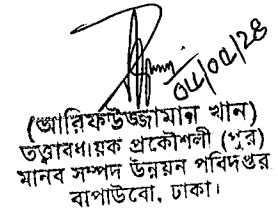 ০৮/০৫/২৪
(আরিফউজ্জামান খান)
তত্ত্বাবধায়ক প্রকৌশলী (পুর)
মানব সম্পদ উন্নয়ন পরিদপ্তর
বাপাউবো, ঢাকা।